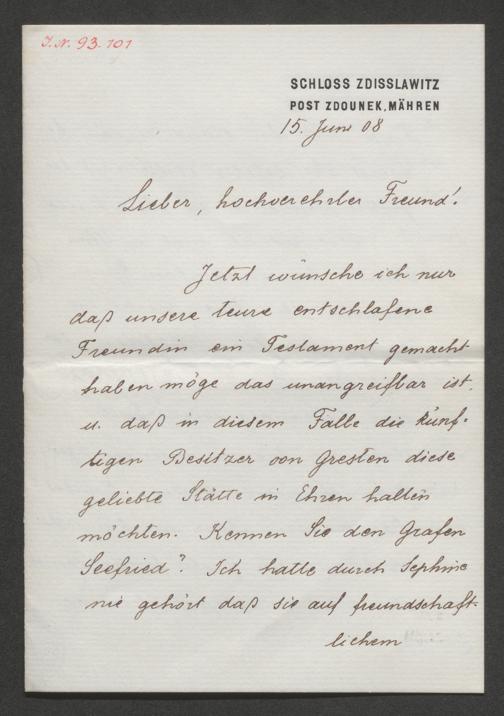 J.N. 93.101
SCHLOSS ZDISSLAWITZ
POST ZDOUNEK, MÄHREN
15. Juni 08
Lieber, hochverehrter Freund!
Jetzt wünsche ich nur
daß unsere teure entschlafene
Freundin ein Testament gemacht
haben möge das unangreifbar ist,
u. daß in diesem Falle die künf-
tigen Besitzer von Gresten diese
geliebte Stätte in Ehren halten
möchten. Kennen Sie den Grafen
Seefried? Ich hatte durch Sephine
nie gehört daß sie auf freundschaft-
lichem